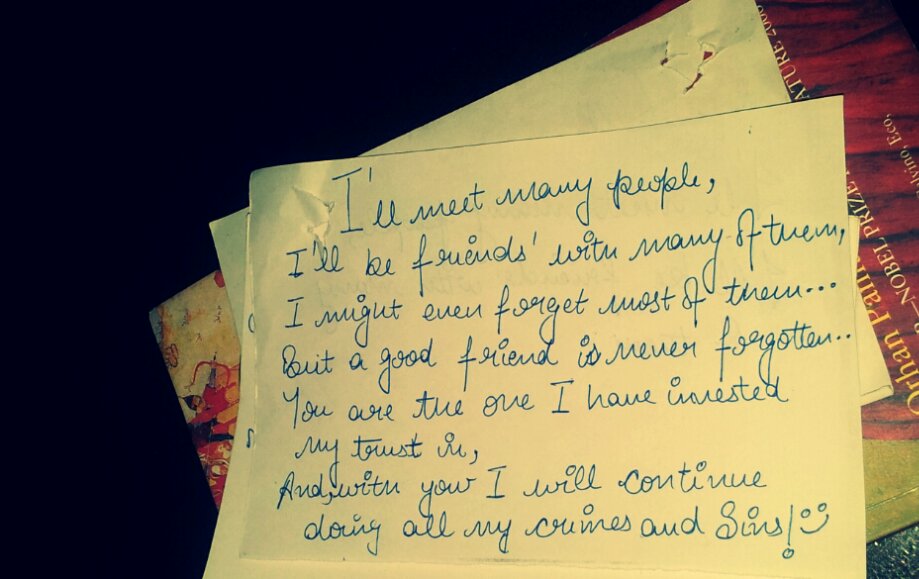 I'll meet many people,
I'll be friends' with many of them,
I might even forget most of them...
But a good friend is never forgotten..
You are the one I have invested
my trust in,
And, with you I will continue
doing all my crimes and Sins! :)
ATURE 2006
NOBEL PRIZE
lvino, Eco,
Orhan Pam